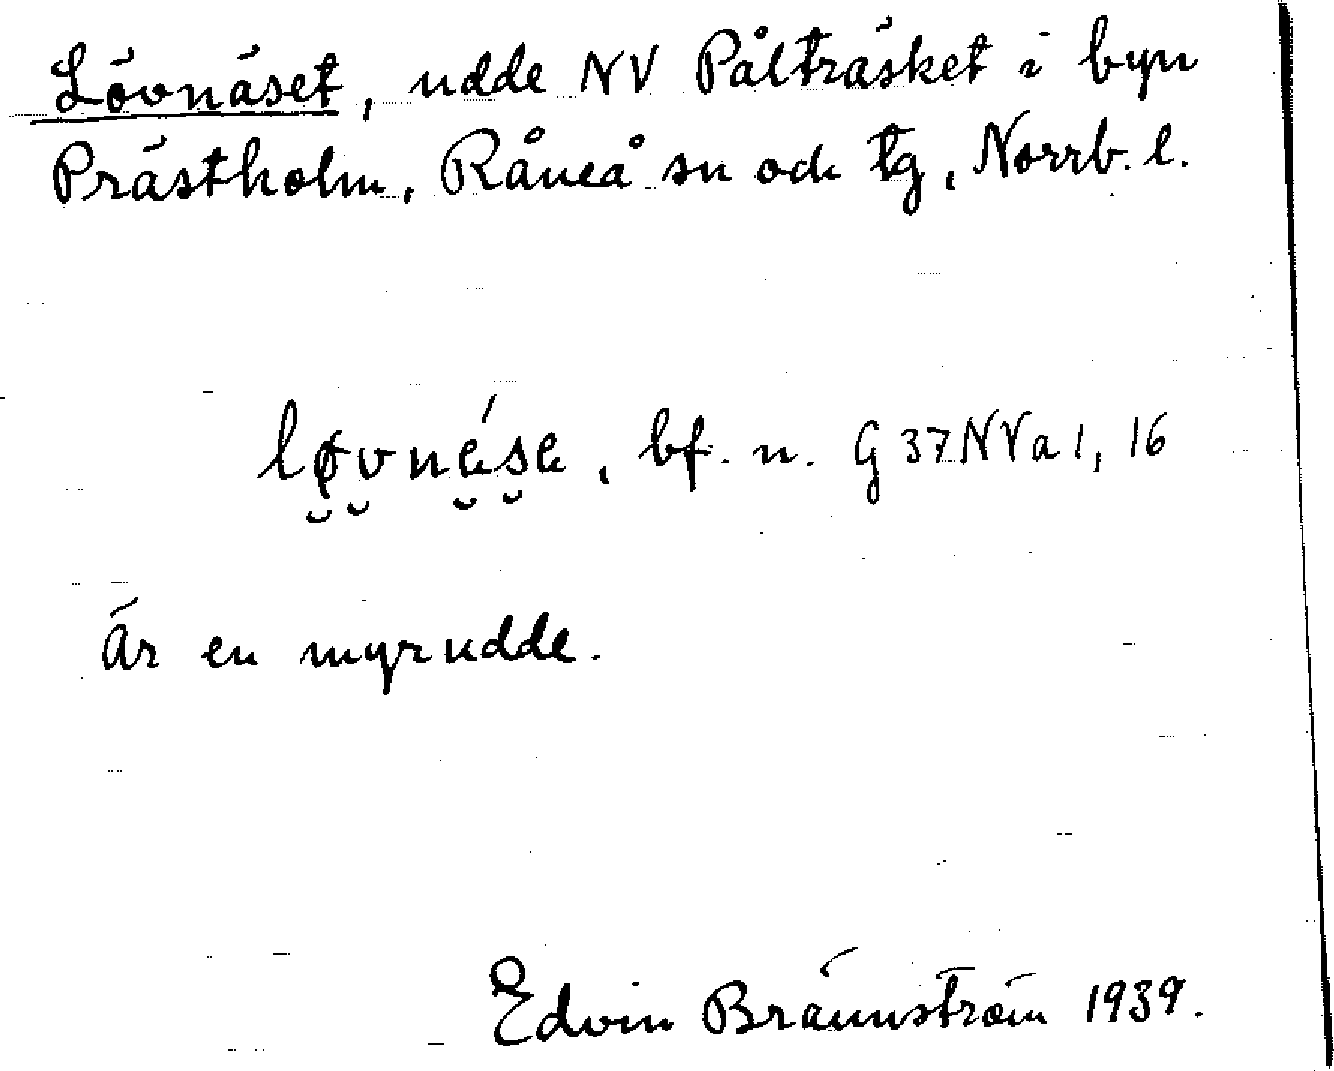 Lövnäset, udde NV Pålträsket i byn
Prästholm, Råneå sn och tg, Norrb. l.
løvnǽsæ, bf. n. G 37 NV a 1, 16
Är en myrudde.
Edvin Brännström 1939.